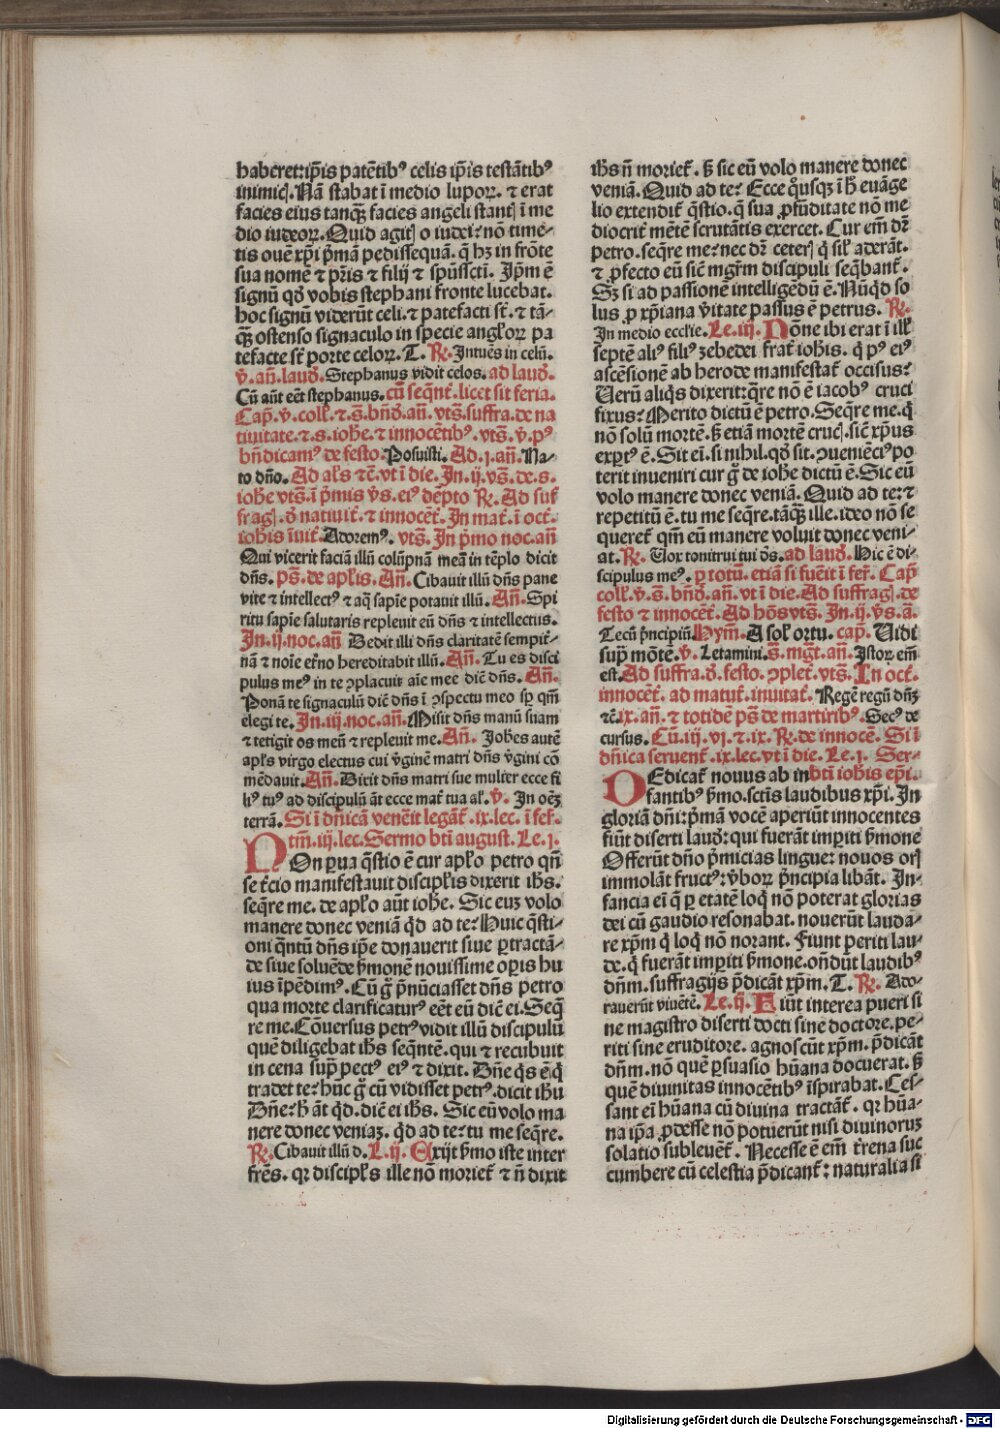 haberet: ip̄is patētib⁹ celis ip̄is testātib⁹
inimicꝭ. Nā stabat ī medio luporꝝ. ⁊ erat
facies eius tanqȝ facies angeli stantꝭ ī me
dio iudeorꝝ. Quid agitꝭ o iudei? nō time-
tis ouē xp̄i p̄mā pedissequā. q̄ hȝ in frōte
sua nomē ⁊ pr̄is ⁊ filij ⁊ sp̄ūsscti. Ip̄m ē
signū qd̄ vobis stephani fronte lucebat.
hoc signū viderūt celi. ⁊ patefacti st̄. ⁊ tā-
qȝ ostenso signaculo in specie angl̓orꝝ pa
tefacte st̄ porte celorꝝ. T. R̷. Intuēs in celū.
v̄. an̄. laud̄. Stephanus vidit celos. ad laud̄.
Cū aūt eēt stephanus. cū seqn̄t. licet sit feria.
Cap̄. v̄. coll̄. ⁊ .s. bn̄d̄. an̄. vts̄. suffra. de na
tiuitate. ⁊ .s. iohe. ⁊ innocētib⁹. vts̄. v̄. p⁹
bn̄dicam⁹ de festo. Posuisti. Ad .j. an̄. Na-
to dn̄o. Ad al̓s ⁊c̄. vt ī die. In .ij. vs̄. de .s.
iohe vts̄. ī p̄mis v̄s. ei⁹ dep̄to R̷. Ad suf
fraḡ. d̄ natiuit̄. ⁊ innocēt̄. In mat̄. ī oct̄.
iohis īuit̄. Adorem⁹. vts̄. In p̄mo noc. an̄
Qui vicerit faciā illū colūpnā meā in tēplo dicit
dn̄s. ps̄. de apl̓is. An̄. Cibauit illū dn̄s pane
vite ⁊ intellect⁹ ⁊ aq̄ sapīe potauit illū. An̄. Spi
ritu sapīe salutaris repleuit eū dn̄s ⁊ intellectus.
In .ij. noc. an̄ Dedit illi dn̄s claritatē sempit̄-
nā ⁊ noīe et̄no hereditabit illū. An̄. Tu es disci
pulus me⁹ in te ꝯplacuit aīe mee dic̄ dn̄s. An̄.
Ponā te signaculū dic̄ dn̄s ī ꝯspectu meo sp̄ qm̄
elegi te. In .iij. noc. an̄. Misit dn̄s manū suam
⁊ tetigit os meū ⁊ repleuit me. An̄. Iohēs autē
apl̓s virgo electus cui v̓ginē matri dn̄s v̓gini cō
mēdauit. An̄. Dixit dn̄s matri sue mulier ecce fi
li⁹ tu⁹ ad discipulū āt ecce mat̄ tua al̓. v̄. In oēȝ
terrā. Si ī dn̄icā venēit legāt̄. ix. lec. ī fer̄.
tm̄. iij. lec. Sermo bt̄i august. Le. j.
NOn ꝑua q̄stio ē cur apl̓o petro qn̄
se t̄cio manifestauit discipl̓is dixerit ih̄s.
seq̄re me. de apl̓o aūt iohe. Sic euȝ volo
manere donec veniā qd̄ ad te? Huic q̄sti-
oni q̄ntū dn̄s ip̄e donauerit siue ꝑtractā-
de siue soluēde ẜmonē nouissime oꝑis hu
ius īpēdim⁹. Cū ḡ p̄nūciasset dn̄s petro
qua morte clarificatur⁹ eēt eū dic̄ ei. Seq̄
re me. Cōuersus petr⁹ vidit illū discipulū
quē diligebat ih̄s seqn̄tē. qui ⁊ recubuit
in cena sup̄ pect⁹ ei⁹ ⁊ dixit. Dn̄e qs̄ ē q̄
tradet te? hūc ḡ cū vidisset petr⁹. dicit ih̄u
Dn̄e? h̄ āt qd̄. dic̄ ei ih̄s. Sic eū volo ma
nere donec veniaȝ. qd̄ ad te? tu me seq̄re.
R̷. Cibauit illū d. L. ij. Exijt ẜmo iste inter
fr̄es. qꝛ discipl̓s ille nō moriet̄ ⁊ n̄ dixit
ih̄s n̄ moriet̄. ẜ sic eū volo manere donec
veniā. Quid ad te? Ecce qͦusqȝ ī h̄ euāge
lio extendit̄ q̄stio. q̄ sua ꝓfūditate nō me
diocrit̄ mētē scrutātis exercet. Cur em̄ dr̄
petro. seq̄re me? nec dr̄ ceterꝭ q̄ sil̓ aderāt.
⁊ ꝓfecto eū sic̄ mgr̄m discipuli seq̄bant̄.
Sȝ si ad passionē intelligēdū ē. Nūqd̄ so
lus ꝓ xp̄iana v̓itate passus ē petrus. R̷.
In medio eccl̓ie. Le. iij. Nōne ibi erat ī ill̓
septē ali⁹ fili⁹ zebedei frat̄ iohis. q̄ p⁹ ei⁹
ascēsionē ab herode manifestat̄ occisus?
Uerū aliqs̄ dixerit: qr̄e nō ē iacob⁹ cruci
fixus? Merito dictū ē petro. Seq̄re me. q̄
nō solū mortē. ẜ etiā mortē crucꝭ. sic̄ xp̄us
exꝑt⁹ ē. Sit eī. si nihil. qd̄ sit. ꝯueniēci⁹ po
terit inueniri cur ḡ de iohe dictū ē. Sic eū
volo manere donec veniā. Quid ad te? ⁊
repetitū ē. tu me seq̄re. tāqȝ ille. ideo nō se
queret̄ qm̄ eū manere voluit donec veni-
at. R̷. Uox tonitrui tui d̄s. ad laud̄. Hic ē di-
scipulus me⁹. ꝑ totū. etiā si fuēit ī fer̄. Cap̄
coll̄. v̄. s̄. bn̄d̄. an̄. vt ī die. Ad suffraḡ. de
festo ⁊ innocēt̄. Ad hōs vts̄. In .ij. v̄s. ā.
Tecū p̄ncipiū. Hym̄. A solꝭ ortu. cap̄. Uidi
sup̄ mōtē. v̄. Letamini. s̄. mgt̄. an̄. Istorꝝ em̄
est. Ad suffra. d̄. festo. ꝯplet̄. vts̄. In oct̄.
innocēt̄. ad matut̄. inuitat̄. Regē regū dn̄ȝ
⁊c̄. ix. an̄. ⁊ totidē ps̄ de martirib⁹. Sec⁹ de
cursus. Cū .iij. vj. ⁊ ix. R̷. de innocē. Si ī
dn̄ica seruent̄. ix. lec. vt ī die. Le. j. Ser-
mo bt̄i iohis ep̄i.
DEdicat̄ nouus ab in
fantibus ẜmo. sct̄is laudibus xp̄i. In
gloriā dn̄i: p̄mā vocē aperiūt innocentes
fiūt diserti laud̄: qui fuerāt imꝑiti ẜmone
Offerūt dn̄o p̄micias lingue: nouos orꝭ
immolāt fruct⁹: v̓borꝝ p̄ncipia libāt. In-
fancia eī q̄ ꝑ etatē loq̄ nō poterat glorias
dei cū gaudio resonabat. nouerūt lauda-
re xp̄m q̄ loq̄ nō norant. Fiunt periti lau-
de. q̄ fuerāt imꝑiti ẜmone. on̄dūt laudib⁹
dn̄m. suffragijs p̄dicāt xp̄m. T. R̷. Ado-
rauerūt viuētē. Le. ij. Fiūt interea pueri si
ne magistro diserti docti sine doctore. pe-
riti sine eruditore. agnoscūt xp̄m. p̄dicāt
dn̄m. nō quē ꝑsuasio hūana docuerat. ẜ
quē diuinitas innocētib⁹ īspirabat. Ces-
sant eī hūana cū diuina tractāt̄. qꝛ hūa-
na ip̄a ꝓdesse nō potuerūt nisi diuinoruȝ
solatio subleuēt̄. Necesse ē em̄ t̄rena suc
cumbere cū celestia p̄dicant̄: naturalia si
Digitalisierung gefördert durch die Deutsche Forschungsgemeinschaft - DFG